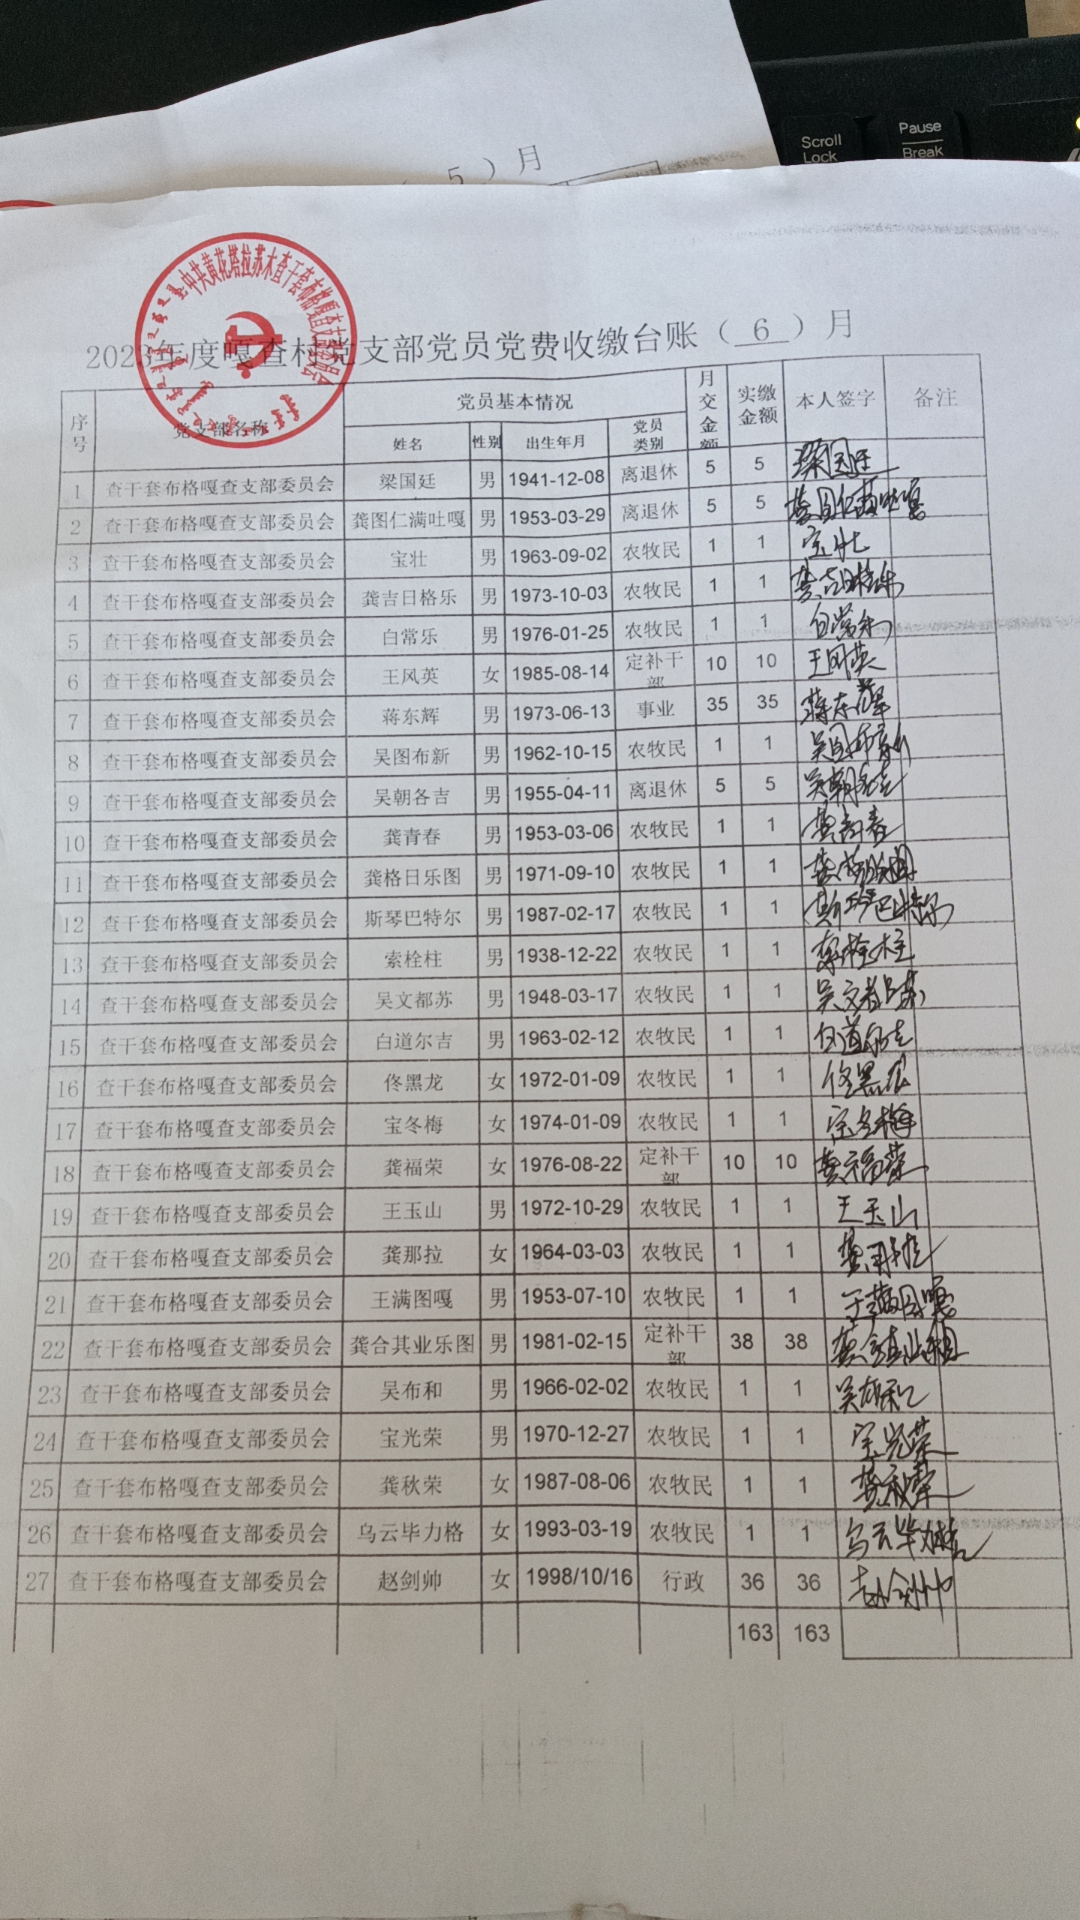 Scroll
Lock
Pause
Break
5 ） 月
中共黄花塔拉苏木查干套布格嘎查支部委员会
2023年度嘎查村党支部党员党费收缴台账（ 6 ）月
序号 党支部名称 党员基本情况 月交金额 实缴金额 本人签字 备注
姓名 性别 出生年月 党员类别
1 查干套布格嘎查支部委员会 梁国廷 男 1941-12-08 离退休 5 5 梁国廷
2 查干套布格嘎查支部委员会 龚图仁满吐嘎 男 1953-03-29 离退休 5 5 龚图仁满吐嘎
3 查干套布格嘎查支部委员会 宝壮 男 1963-09-02 农牧民 1 1 宝壮
4 查干套布格嘎查支部委员会 龚吉日格乐 男 1973-10-03 农牧民 1 1 龚吉日格乐
5 查干套布格嘎查支部委员会 白常乐 男 1976-01-25 农牧民 1 1 白常乐
6 查干套布格嘎查支部委员会 王风英 女 1985-08-14 定补干部 10 10 王风英
7 查干套布格嘎查支部委员会 蒋东辉 男 1973-06-13 事业 35 35 蒋东辉
8 查干套布格嘎查支部委员会 吴图布新 男 1962-10-15 农牧民 1 1 吴图布新
9 查干套布格嘎查支部委员会 吴朝各吉 男 1955-04-11 离退休 5 5 吴朝各吉
10 查干套布格嘎查支部委员会 龚青春 男 1953-03-06 农牧民 1 1 龚青春
11 查干套布格嘎查支部委员会 龚格日乐图 男 1971-09-10 农牧民 1 1 龚格日乐图
12 查干套布格嘎查支部委员会 斯琴巴特尔 男 1987-02-17 农牧民 1 1 斯琴巴特尔
13 查干套布格嘎查支部委员会 索栓柱 男 1938-12-22 农牧民 1 1 索栓柱
14 查干套布格嘎查支部委员会 吴文都苏 男 1948-03-17 农牧民 1 1 吴文都苏
15 查干套布格嘎查支部委员会 白道尔吉 男 1963-02-12 农牧民 1 1 白道尔吉
16 查干套布格嘎查支部委员会 佟黑龙 女 1972-01-09 农牧民 1 1 佟黑龙
17 查干套布格嘎查支部委员会 宝冬梅 女 1974-01-09 农牧民 1 1 宝冬梅
18 查干套布格嘎查支部委员会 龚福荣 女 1976-08-22 定补干部 10 10 龚福荣
19 查干套布格嘎查支部委员会 王玉山 男 1972-10-29 农牧民 1 1 王玉山
20 查干套布格嘎查支部委员会 龚那拉 女 1964-03-03 农牧民 1 1 龚那拉
21 查干套布格嘎查支部委员会 王满图嘎 男 1953-07-10 农牧民 1 1 王满图嘎
22 查干套布格嘎查支部委员会 龚合其业乐图 男 1981-02-15 定补干部 38 38 龚合其业乐图
23 查干套布格嘎查支部委员会 吴布和 男 1966-02-02 农牧民 1 1 吴布和
24 查干套布格嘎查支部委员会 宝光荣 男 1970-12-27 农牧民 1 1 宝光荣
25 查干套布格嘎查支部委员会 龚秋荣 女 1987-08-06 农牧民 1 1 龚秋荣
26 查干套布格嘎查支部委员会 乌云毕力格 女 1993-03-19 农牧民 1 1 乌云毕力格
27 查干套布格嘎查支部委员会 赵剑帅 女 1998/10/16 行政 36 36 赵剑帅
163 163